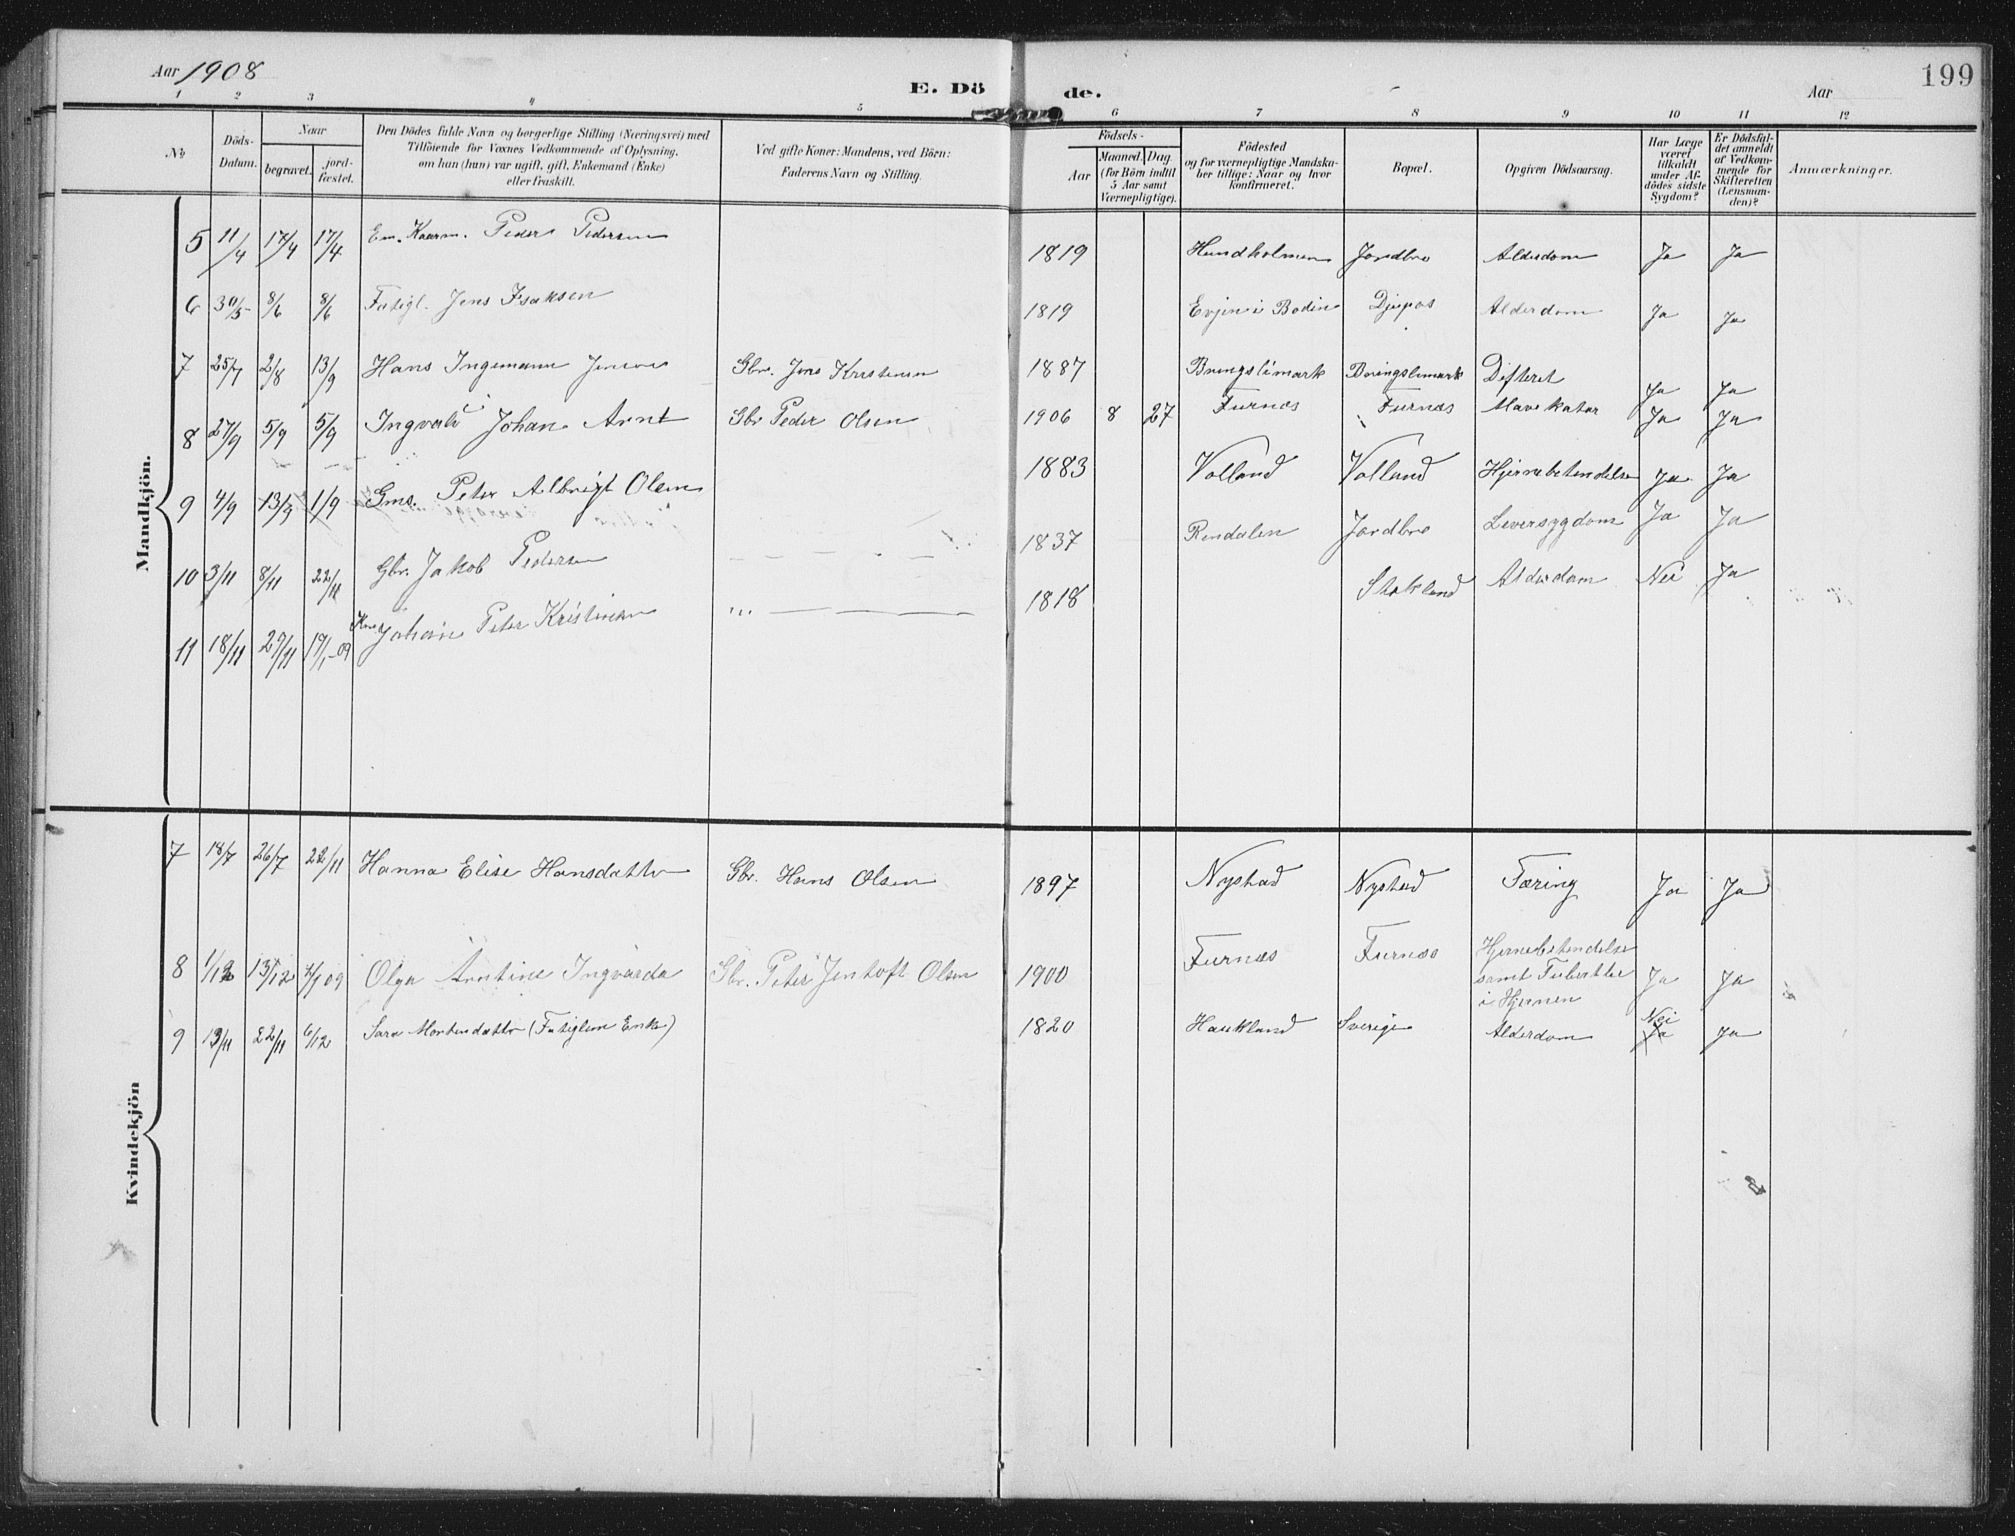 Aar 1908
E. Dö de.
Aar
199
1 2 3 4 5 6 7 8 9 10 11 12
№
Döds-Datum.
Naar
begravet.
jord-fæstet.
Den Dödes fulde Navn og borgerlige Stilling (Næringsvei) med
Tilföiende for Voxnes Vedkommende af Oplysning,
om han (hun) var ugift, gift, Enkemand (Enke)
eller fraskilt.
Ved gifte Koner: Mandens, ved Börn:
Faderens Navn og Stilling.
Födsels-
Aar
Maaned. Dag.
(for Börn indtil
5 Aar samt
Værnepligtige).
Födested
og for værnepligtige Mandska-
ber tillige: Naar og hvor
konfirmeret.
Bopæl.
Opgiven Dödsaarsag.
Har Læge
været
tilkaldt
under Af-
dödes sidste
Sygdom?
Er Dödsfal-
det anmeldt
af Vedkom-
mende for
Skifteretten
(Lensman-
den)?
Anmærkninger.
Mandkjön.
5 11/4 17/4 17/4 Em. Kaarm. Peder Pedersen 1819 Hundholmen Jordbro Alderdom Ja Ja
6 30/5 8/6 8/6 Fatigl. Jens Isaksen 1819 Evjen i Bodin Djupos Alderdom Ja Ja
7 25/7 2/8 13/9 Hans Ingemann Jensen Gbr. Jens Kristensen 1887 Bringslimark Bringslimark Difteret Ja Ja
8 27/9 5/9 5/9 Ingvald Johan Arnt Gbr Peder Olsen 1906 8 27 Furnæs Furnæs Mavekatar Ja Ja
9 4/9 13/9 1/9 Gms. Peter Albrigt Olsen 1883 Volland Volland Hjernebetendelse Ja Ja
10 3/11 8/11 22/11 Gbr. Jakob Pedersen 1837 Rendalen Jordbro Leversygdom Ja Ja
11 18/11 29/11 19/1-09 Johan Peter Kristensen 1818 Stokland Alderdom Nei Ja
Kvindekjön
7 18/7 26/7 22/11 Hanna Elise Hansdatter Gbr. Hans Olsen 1897 Nystad Nystad Tæring Ja Ja
8 1/12 13/12 09 Olga Arntine Ingvarda Gbr. Peter Jentoft Olsen 1900 Furnæs Furnæs Hjernebetendelse
samt Tuberkler
i Hjernen Ja Ja
9 13/11 22/11 6/12 Sara Mortensdatter (Fatiglem Enke) 1820 Haukland Sverige Alderdom Nei Ja Ja